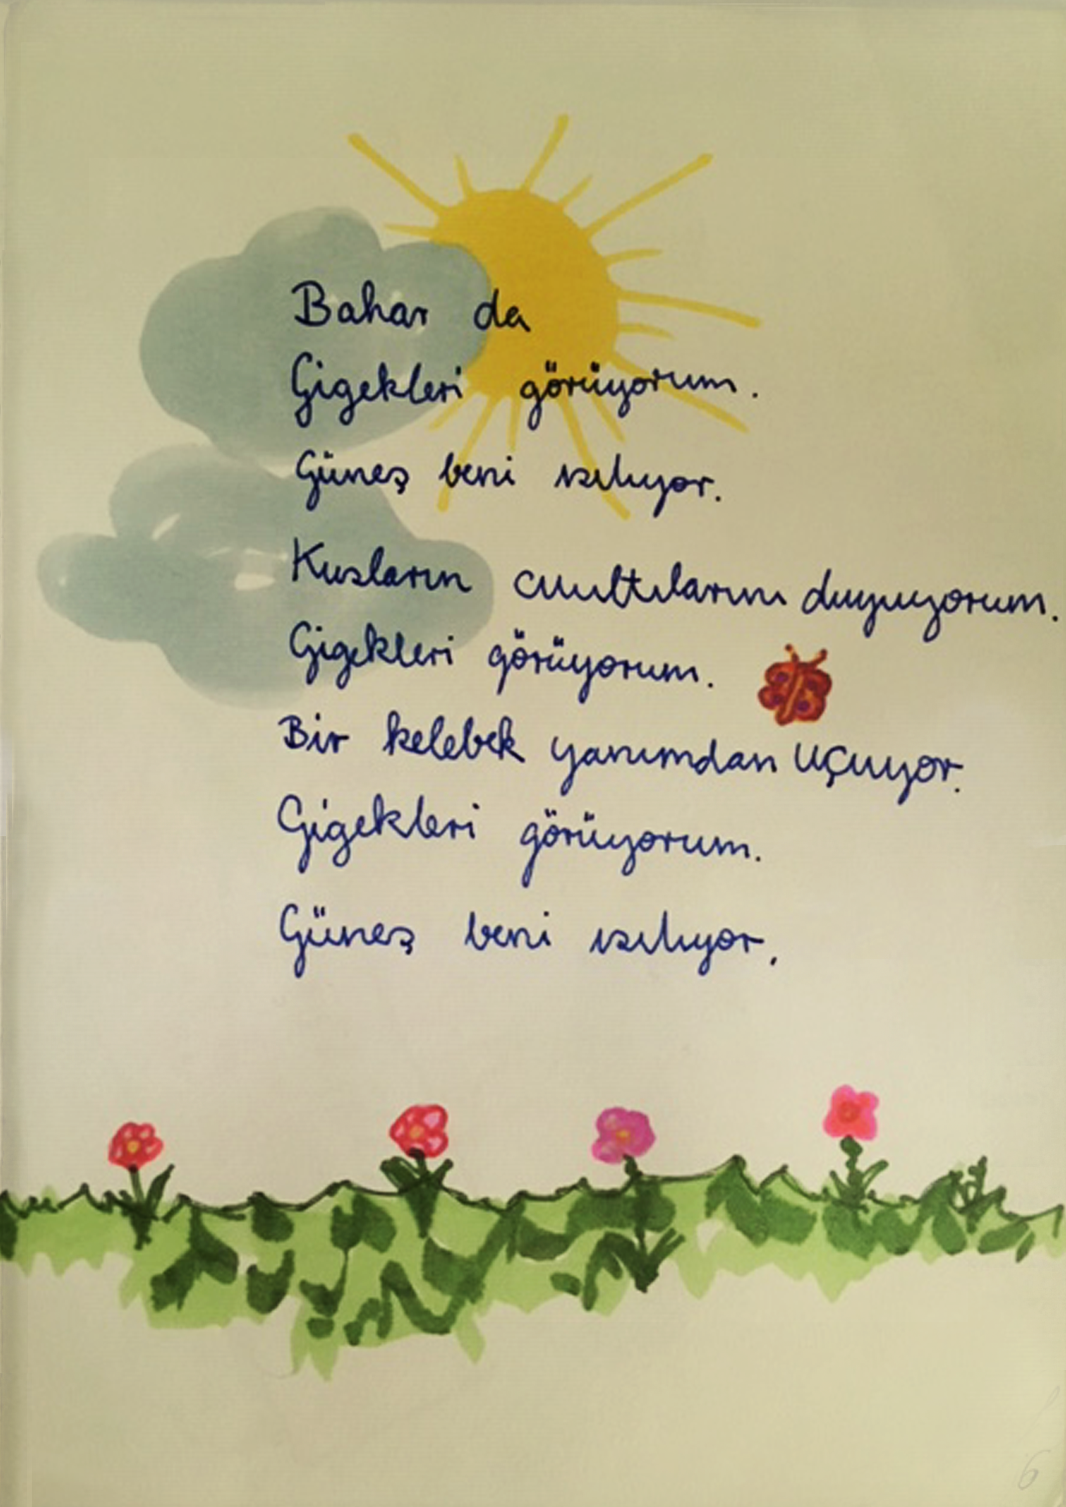 Bahar da
Gigekleri görüyorum.
Güneş beni ısılıyor.
Kusların cıultılarını duyuyorum.
Gigekleri görüyorum.
Bir kelebek yanımdan uçuyor.
Gigekleri görüyorum.
Güneş beni ısılıyor.
6